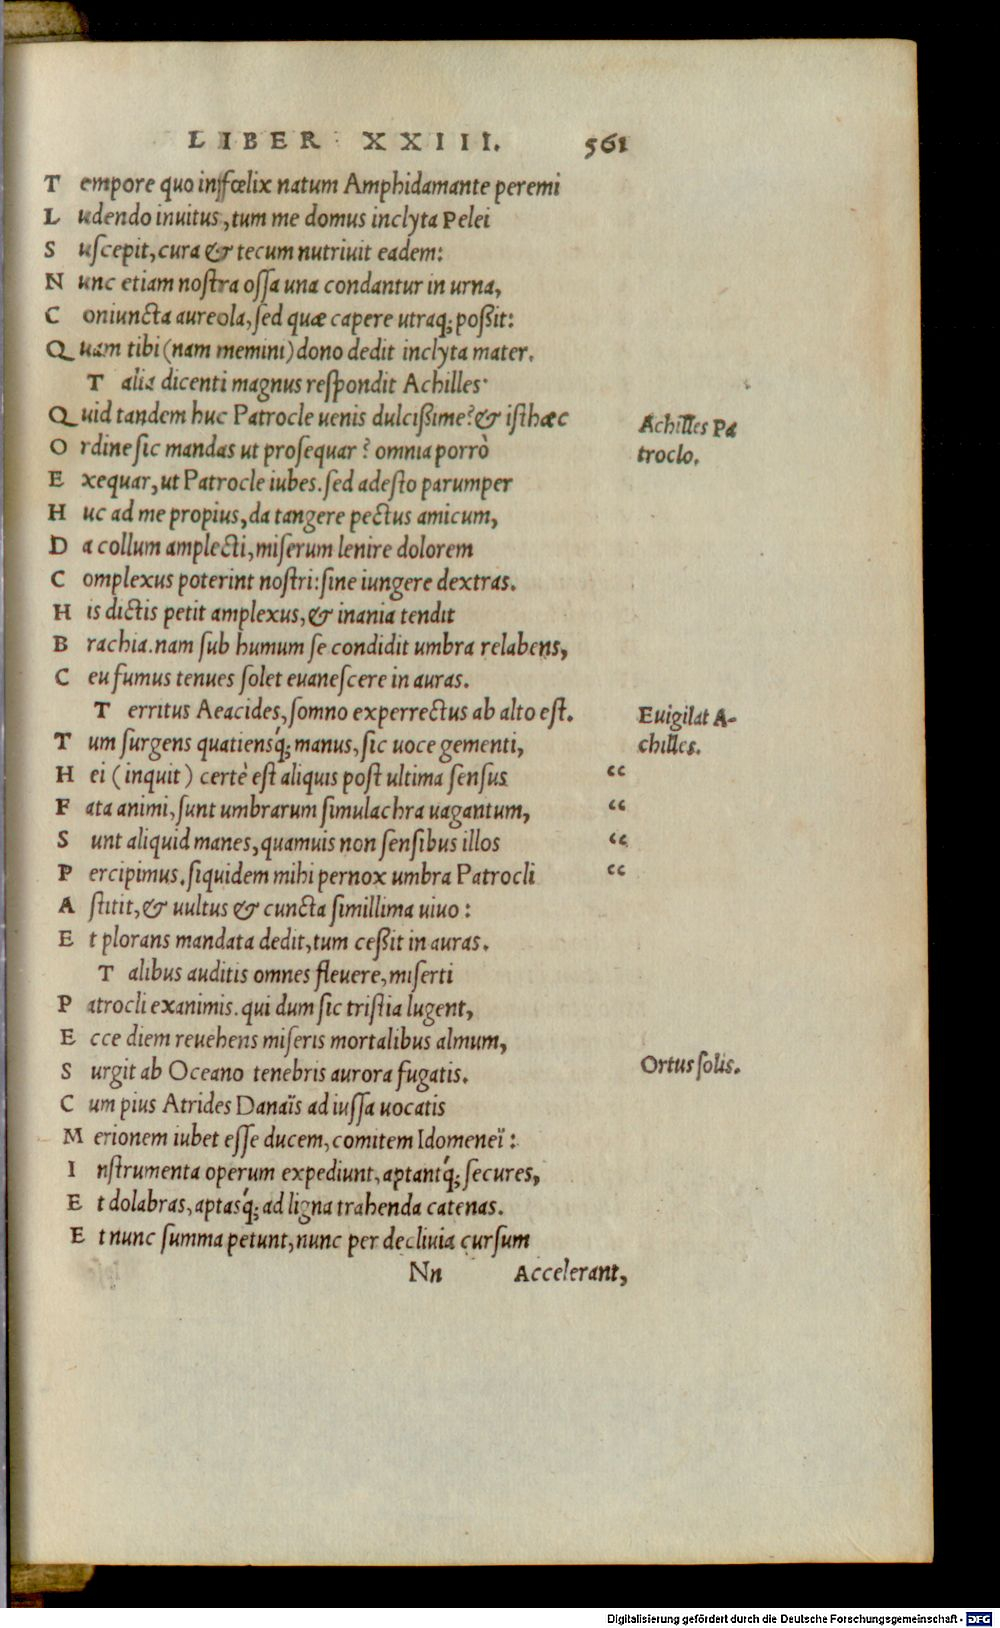 LIBER XXIII. 561
Tempore quo infœlix natum Amphidamante peremi
Ludendo inuitus, tum me domus inclyta Pelei
Suſcepit, cura & tecum nutriuit eadem:
Nunc etiam noſtra oſſa una condantur in urna,
Coniuncta aureola, ſed quæ capere utraq; poßit:
Quam tibi (nam memini) dono dedit inclyta mater.
Talia dicenti magnus reſpondit Achilles·
Quid tandem huc Patrocle uenis dulcißime? & iſthæc
Achilles Pa
Ordine ſic mandas ut proſequar? omnia porrò
troclo.
Exequar, ut Patrocle iubes. ſed adeſto parumper
Huc ad me propius, da tangere pectus amicum,
Da collum amplecti, miſerum lenire dolorem
Complexus poterint noſtri: ſine iungere dextras.
His dictis petit amplexus, & inania tendit
Brachia. nam ſub humum ſe condidit umbra relabens,
Ceu fumus tenues ſolet euaneſcere in auras.
Territus Aeacides, ſomno experrectus ab alto eſt.
Euigilat A-
Tum ſurgens quatiensq́; manus, ſic uoce gementi,
chilles.
Hei (inquit) certè eſt aliquis poſt ultima ſenſus “
Fata animi, ſunt umbrarum ſimulachra uagantum, “
Sunt aliquid manes, quamuis non ſenſibus illos “
Percipimus. ſiquidem mihi pernox umbra Patrocli “
Aſtitit, & uultus & cuncta ſimillima uiuo:
Et plorans mandata dedit, tum ceßit in auras.
Talibus auditis omnes fleuere, miſerti
Patrocli exanimis. qui dum ſic triſtia lugent,
Ecce diem reuehens miſeris mortalibus almum,
Ortus ſolis.
Surgit ab Oceano tenebris aurora fugatis.
Cum pius Atrides Danaïs ad iuſſa uocatis
Merionem iubet eſſe ducem, comitem Idomeneï:
Inſtrumenta operum expediunt, aptantq́; ſecures,
Et dolabras, aptasq́; ad ligna trahenda catenas.
Et nunc ſumma petunt, nunc per decliuia curſum
Nn Accelerant,
Digitalisierung gefördert durch die Deutsche Forschungsgemeinschaft - DFG